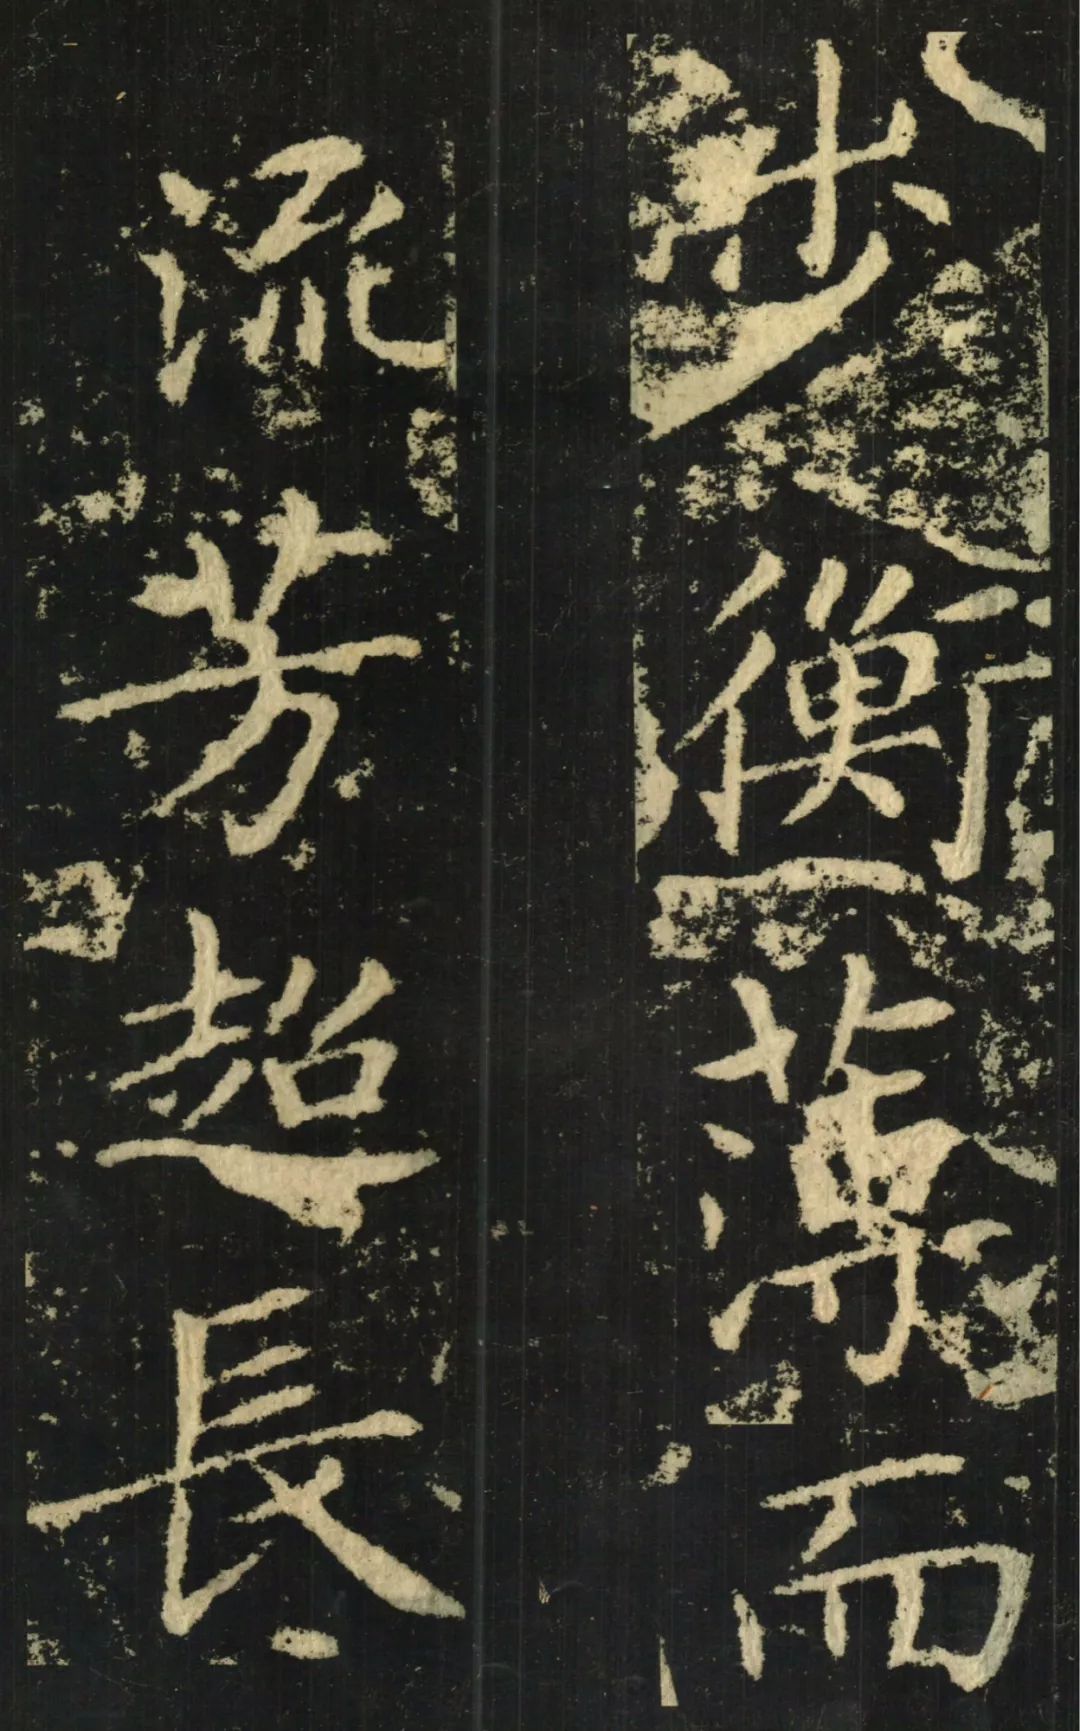 步衡薄而
流芳超長